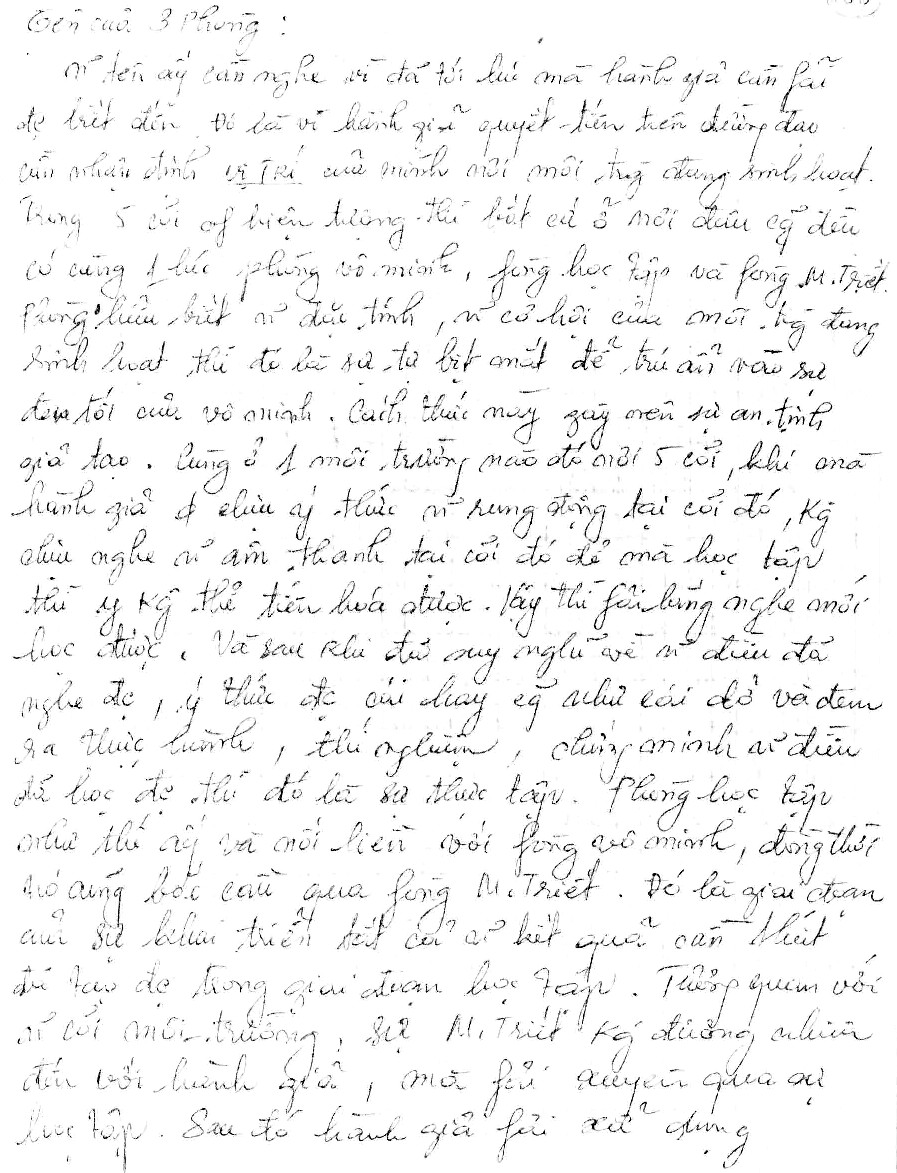 Tên của 3 Phòng :
n~ tên ấy cần nghe vì đã tới lúc mà hành giả cần fải
đc biết đến. Đó là vì hành giả quyết tiến trên đường đạo
cần nhận định VỊ TRÍ của mình nơi môi trg đang sinh hoạt.
Trong 5 cõi of hiện tượng thì bất cứ ở nơi đâu cg~ đều
có cùng 1 lúc phòng vô minh, fòng học tập và fòng M.Triết.
hiểu biết n~ đặc tính, n~ cơ hội của môi trg đang
sinh hoạt thì đó là sự tự bịt mắt để trú ẩn vào sự
đen tối của vô minh. Cách thức này gây nên sự an tịnh
giả tạo. Cũng ở 1 môi trường nào đó nơi 5 cõi, khi mà
hành giả chịu ý thức n~ rung động tại cõi đó, Kg
chịu nghe n~ âm thanh tại cõi đó để mà học tập
thì y Kg thể tiến hóa được. Vậy thì fải lắng nghe mới
học được. Và sau khi đã suy nghĩ về n~ điều đã
nghe đc, ý thức đc cái hay cg~ như cái dở và đem
ra thực hành, thí nghiệm, chứng minh n~ điều
đã học đc thì đó là sự thực tập. Phòng học tập
như thế ấy và nối liền với fòng vô minh, đồng thời
nó cũng bắc cầu qua fòng M.Triết. Đó là giai đoạn
của sự khai triển tất cả n~ kết quả cần thiết
đã tạo đc trong giai đoạn học tập. Tương quan với
n~ cõi môi trường, sự M.Triết Kg đương nhiên
đến với hành giả, mà fải xuyên qua sự
học tập. Sau đó hành giả fải xử dụng